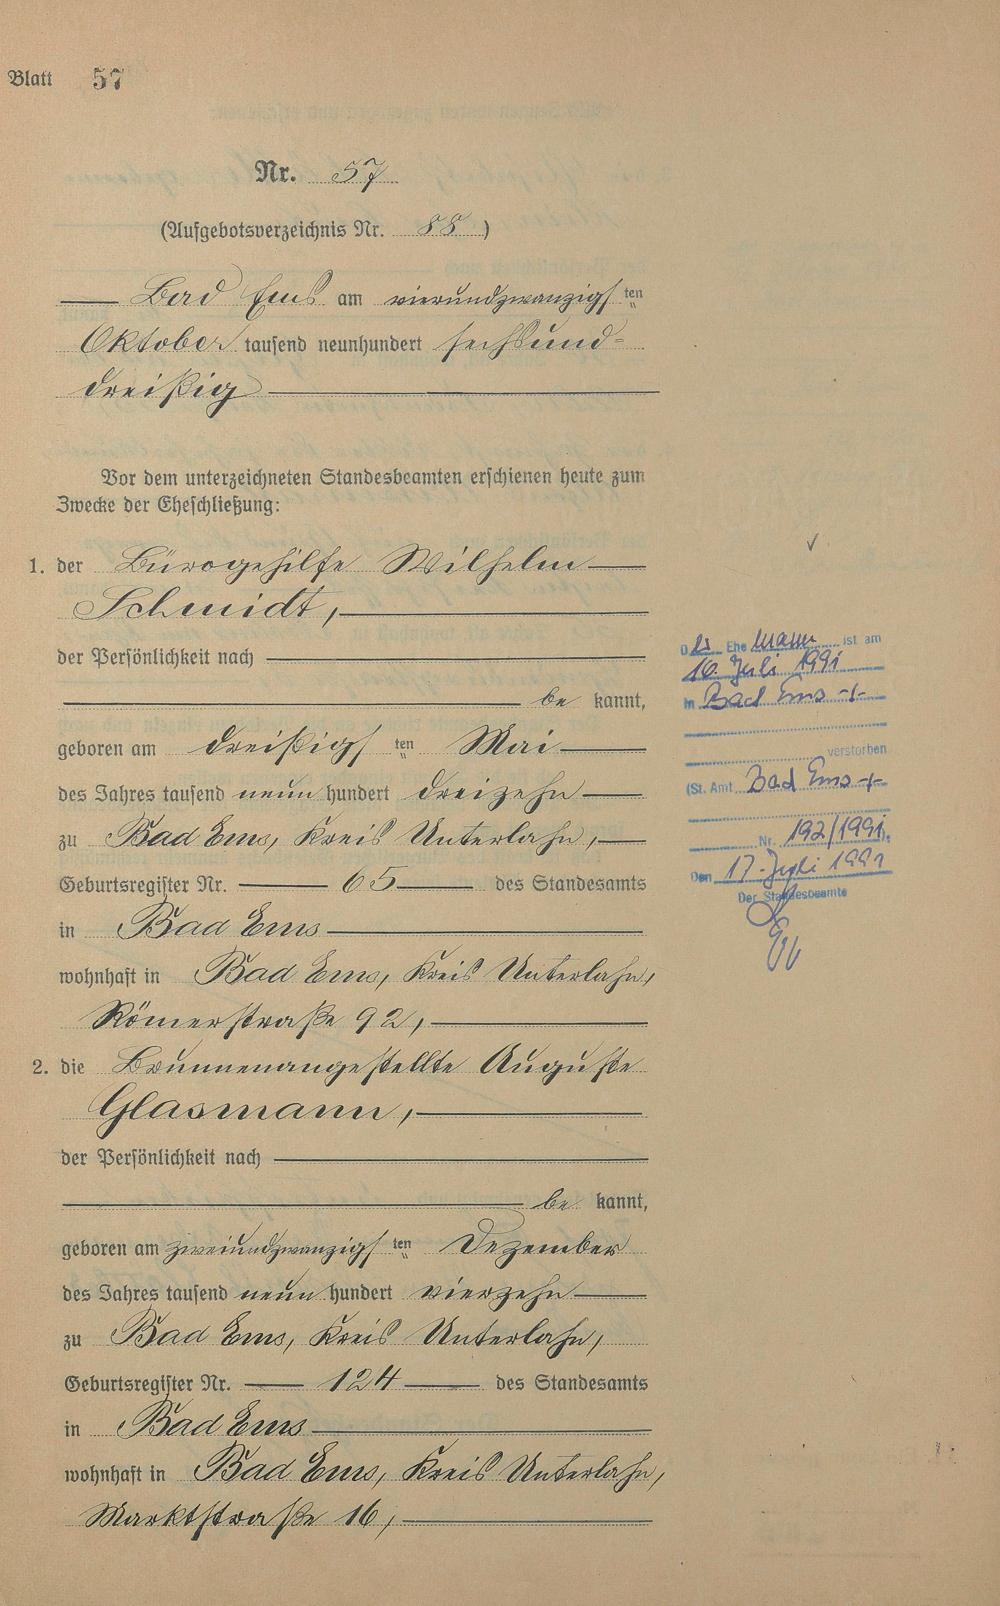 Blatt 57
Nr. 57
(Aufgebotsverzeichnis Nr. 88)
Bad Ems am vierundzwanzigsten
Oktober tausend neunhundert sechsund-
dreißig
Vor dem unterzeichneten Standesbeamten erschienen heute zum
Zwecke der Eheschließung:
1. der Bürogehilfe Wilhelm
Schmidt,
der Persönlichkeit nach
be kannt,
geboren am dreißigsten Mai
des Jahres tausend neun hundert dreizehn
zu Bad Ems, Kreis Unterlahn,
Geburtsregister Nr. 65 des Standesamts
in Bad Ems
wohnhaft in Bad Ems, Kreis Unterlahn,
Römerstraße 92,
2. die Brunnenangestellte Auguste
Glasmann,
der Persönlichkeit nach
be kannt,
geboren am zweiundzwanzigsten Dezember
des Jahres tausend neun hundert vierzehn
zu Bad Ems, Kreis Unterlahn,
Geburtsregister Nr. 124 des Standesamts
in Bad Ems
wohnhaft in Bad Ems, Kreis Unterlahn,
Marktstraße 16,
Der Ehemann ist am
16. Juli 1991
in Bad Ems
verstorben
(St. Amt Bad Ems
Nr. 192/1991).
Den 17. Juli 1991
Der Standesbeamte